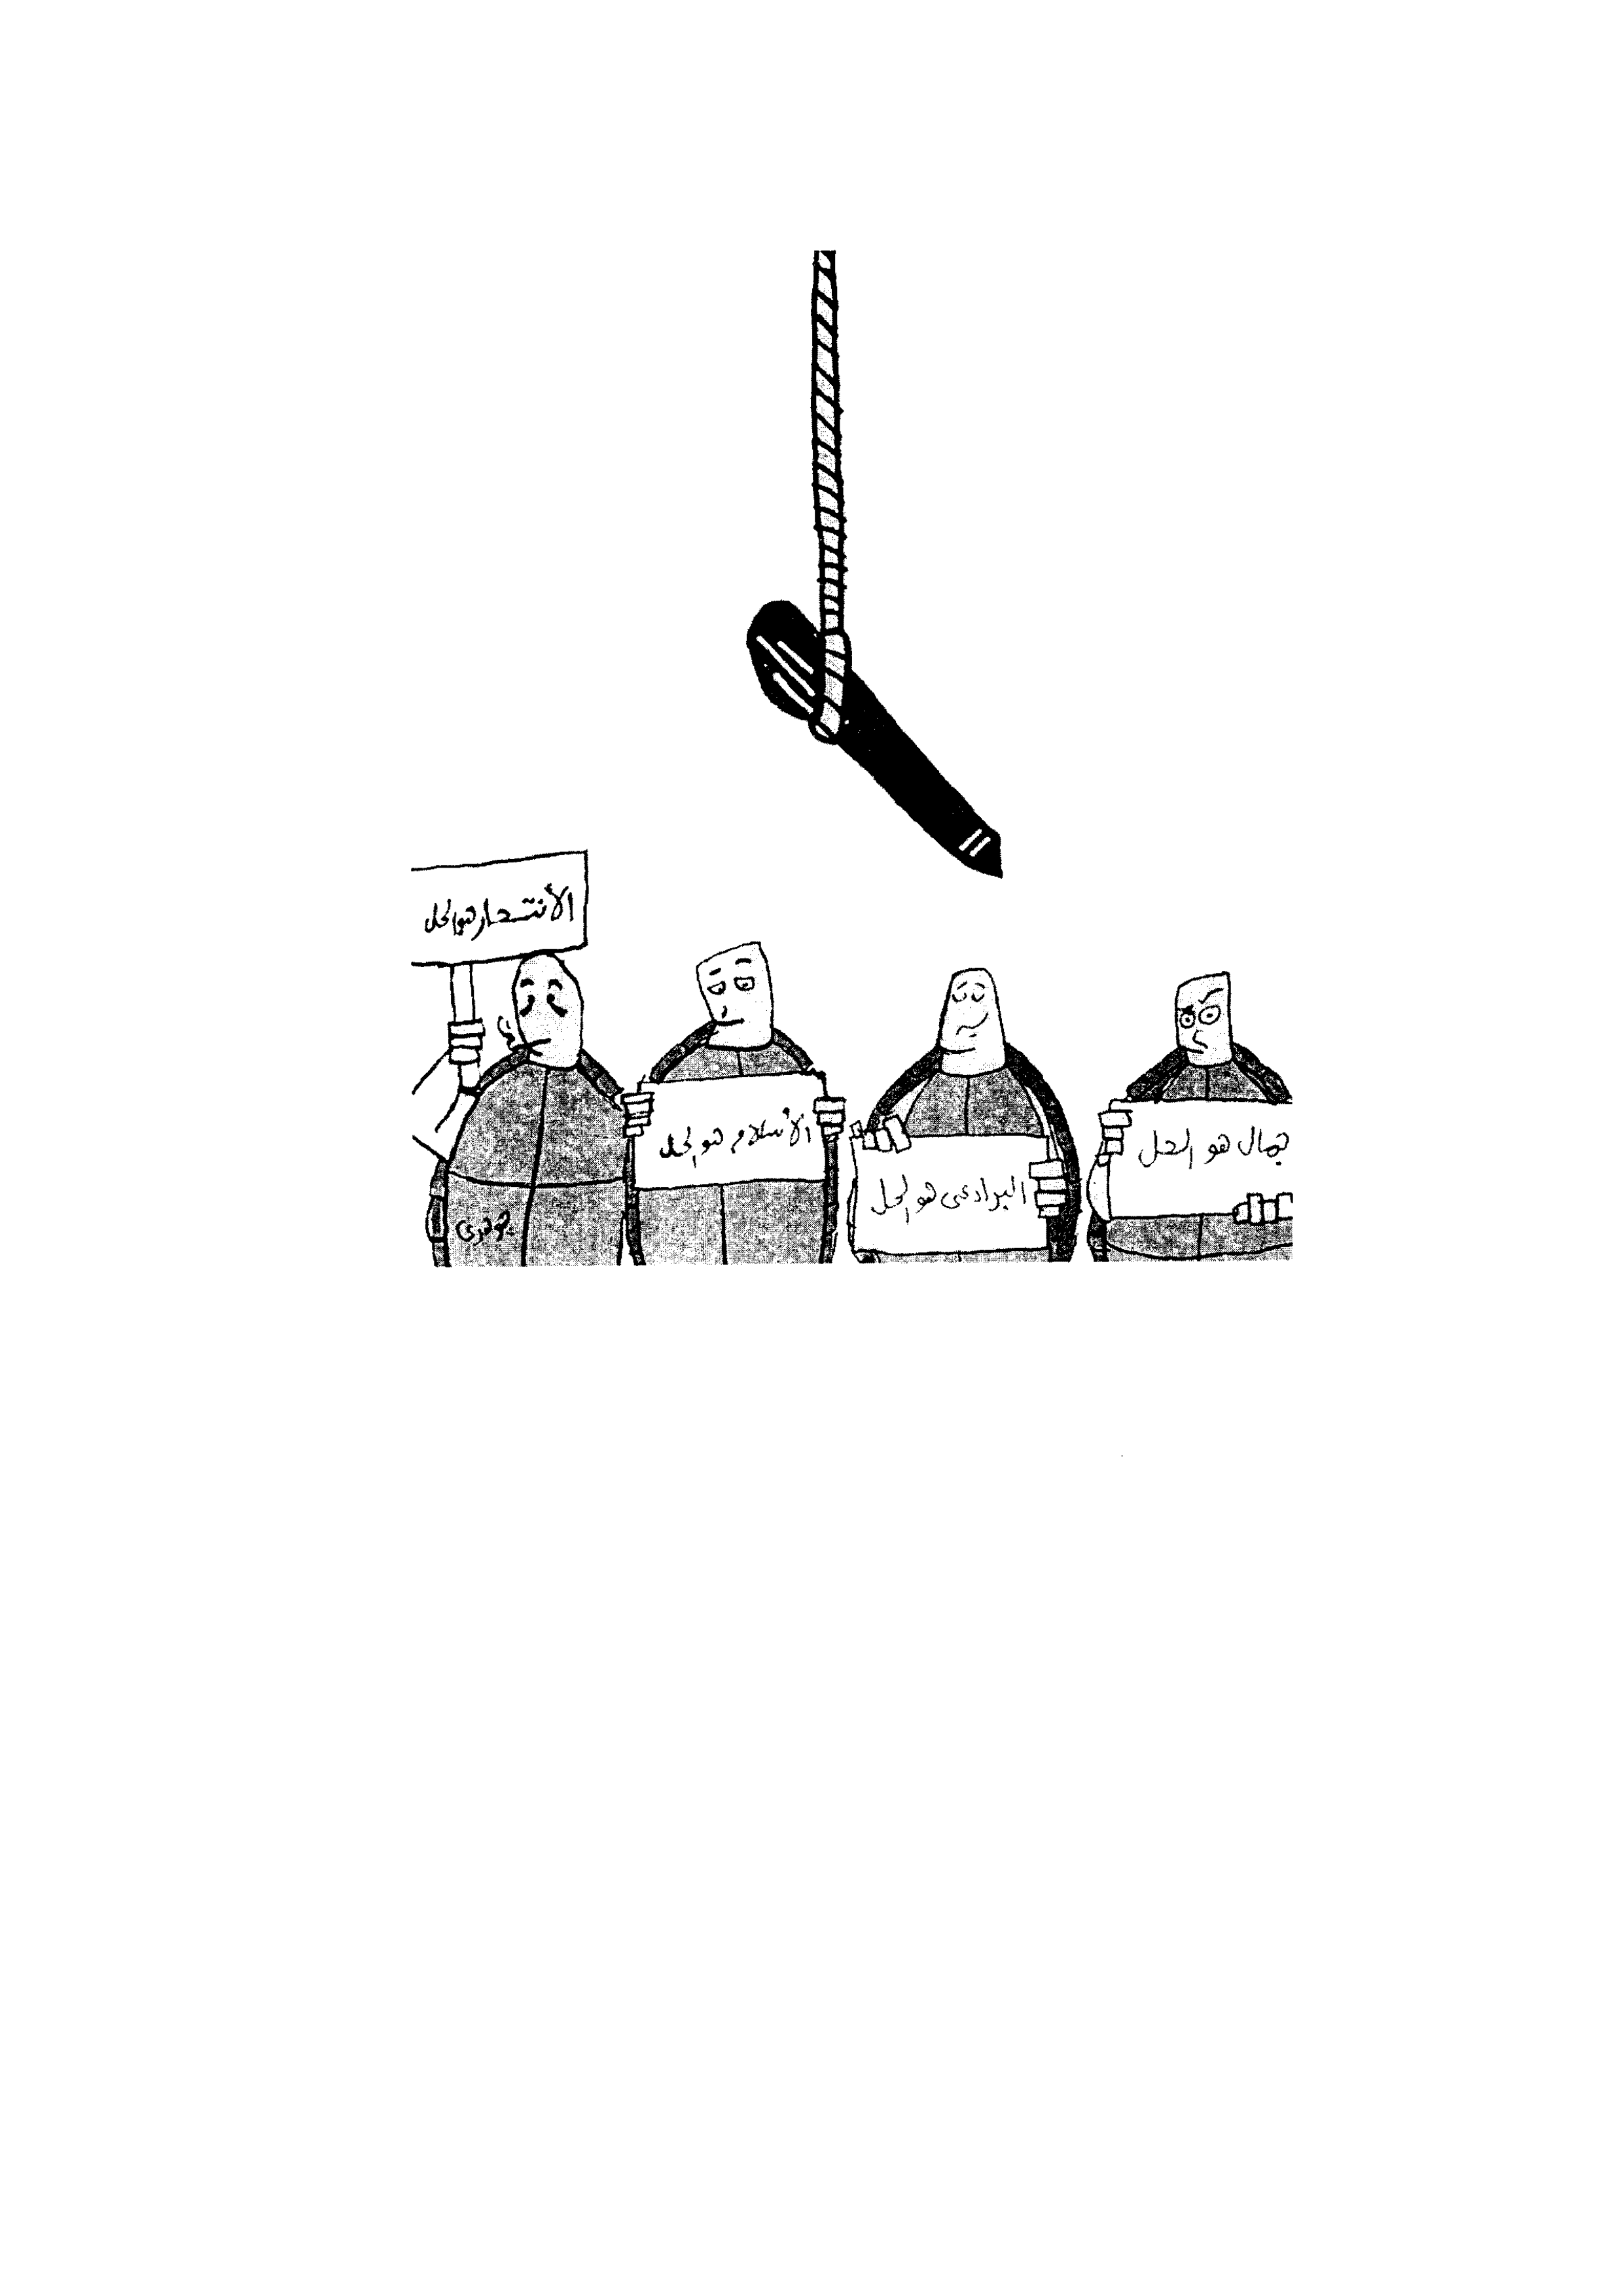 جمال هو الحل
البرادعى هو الحل
الأسلام هو الحل
الأنتحار هو الحل